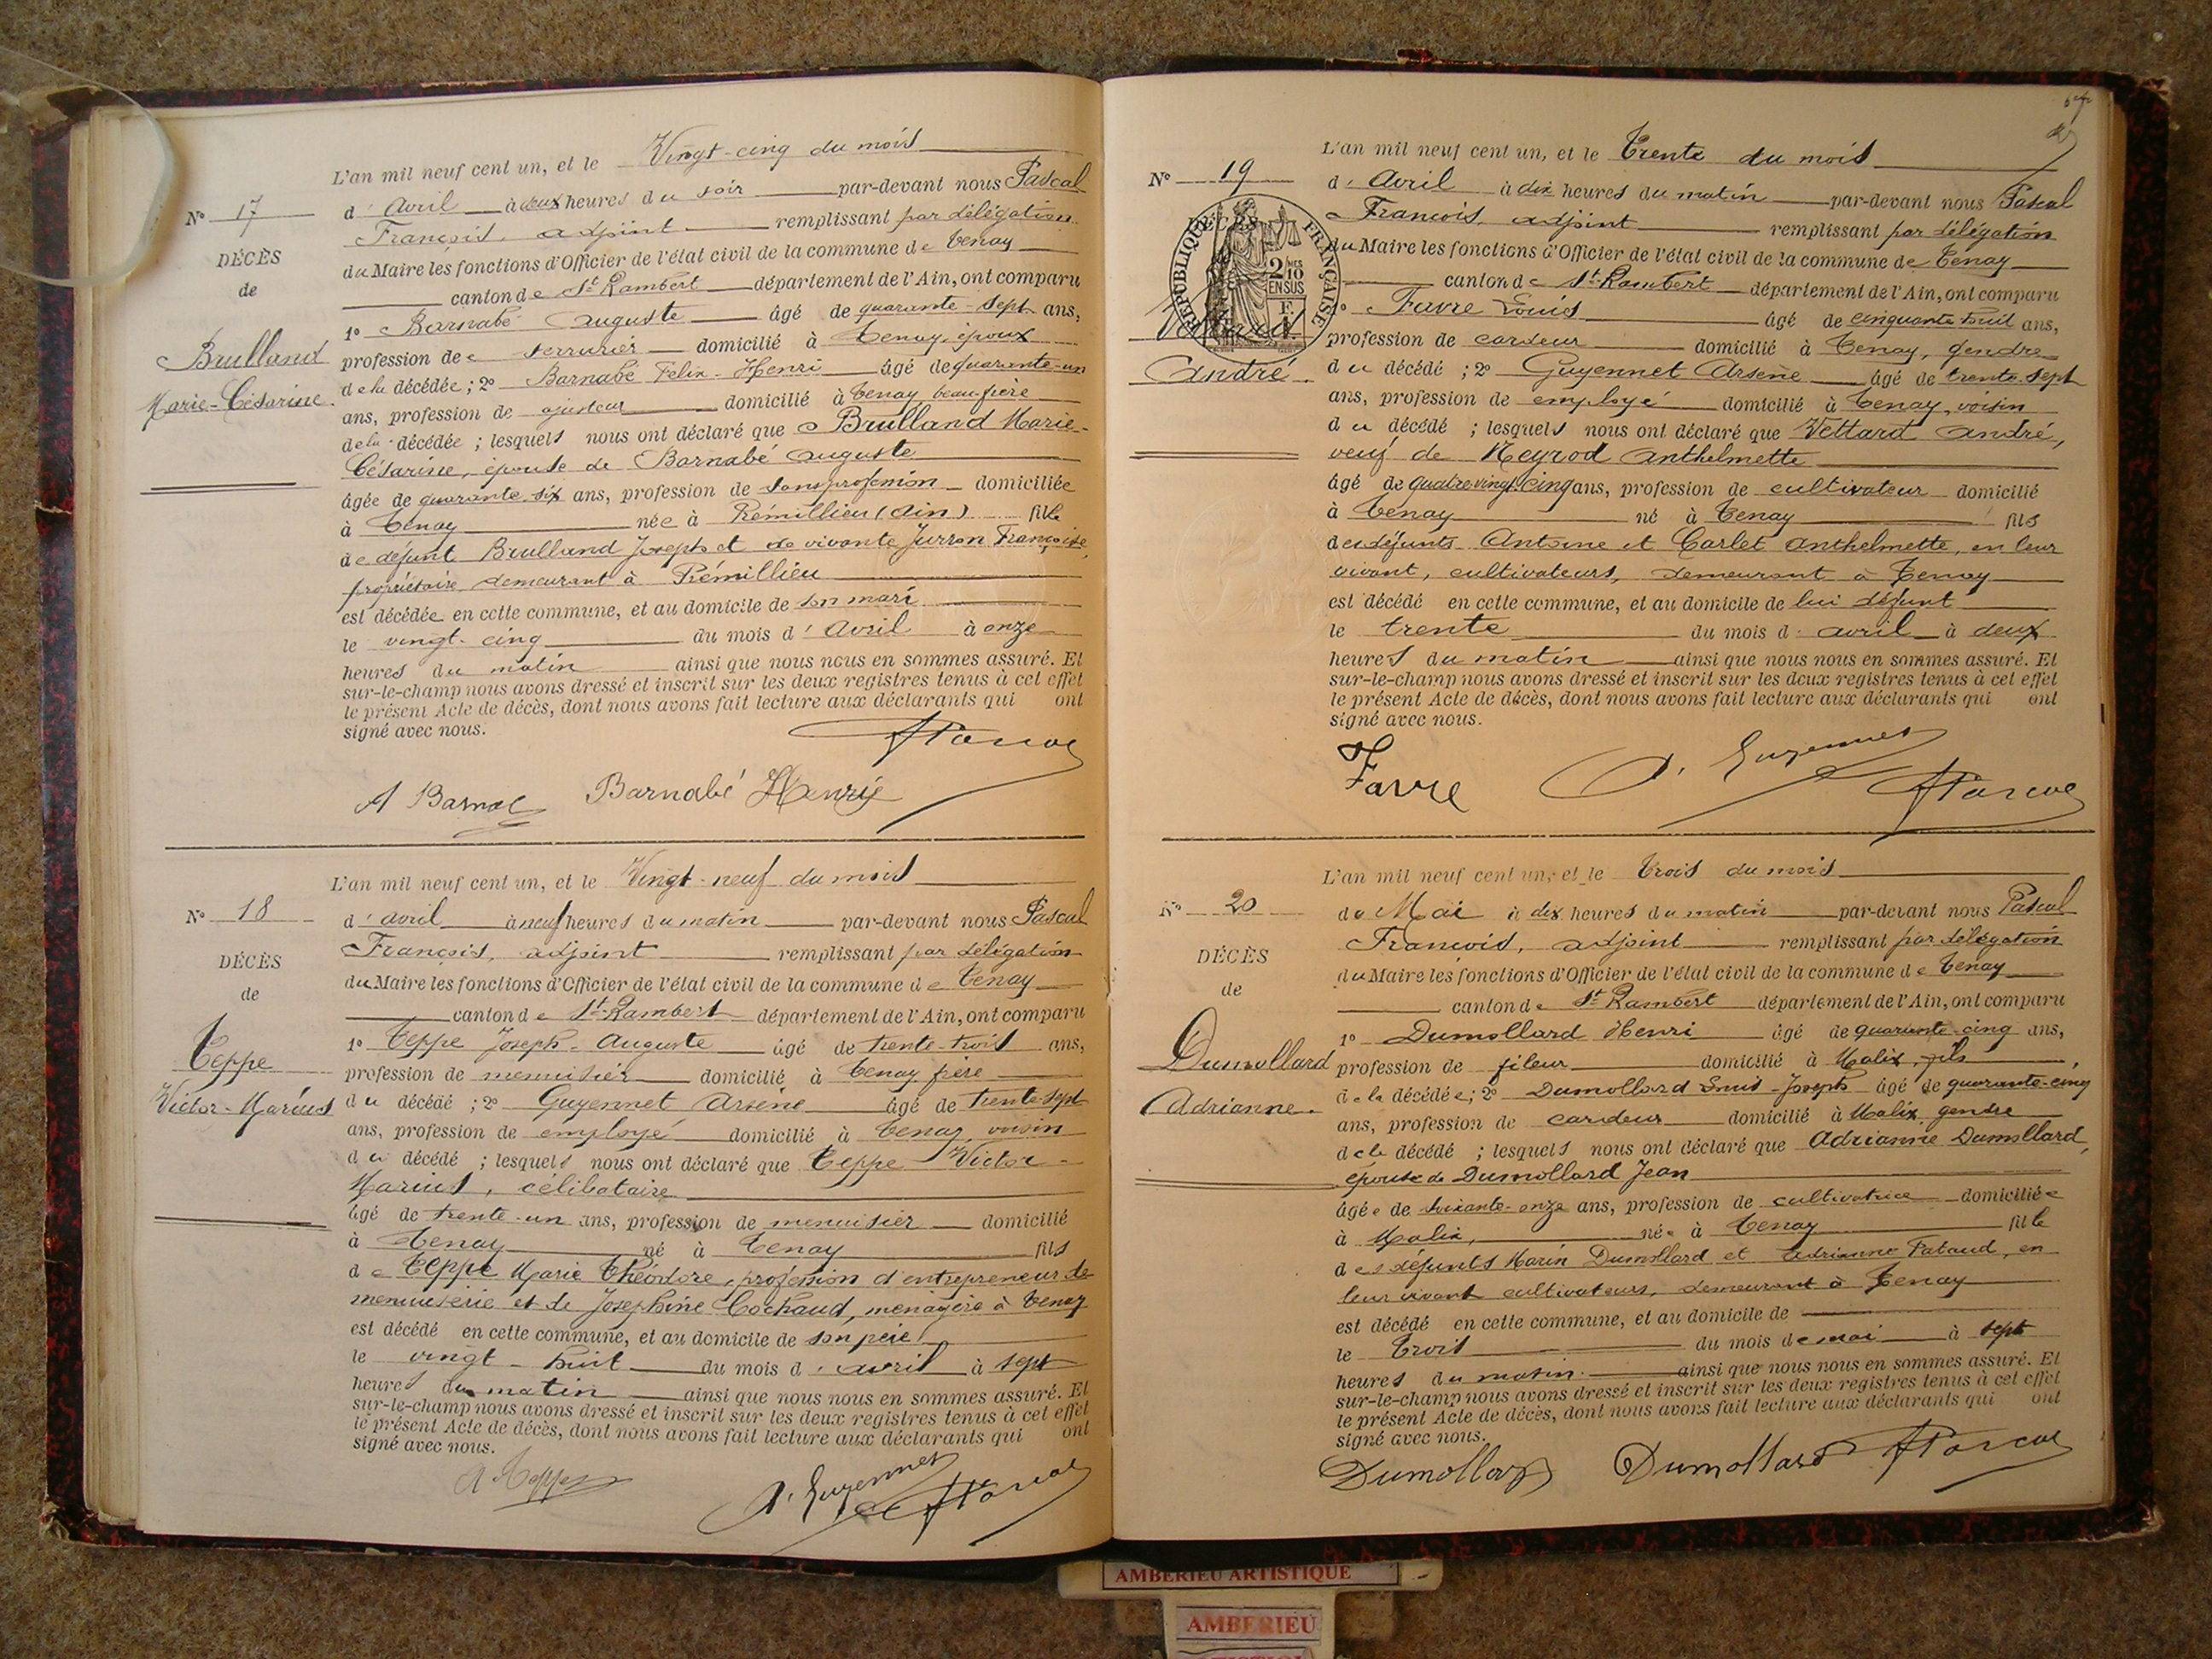 L'an mil neuf cent un, et le Vingt-cinq du mois
N° 17
d'Avril à deux heures du soir par-devant nous Pascal
François, adjoint remplissant par délégation
DÉCÈS
du Maire les fonctions d'Officier de l'état civil de la commune de Tenay
de
canton de St Rambert département de l'Ain, ont comparu
1° Barnabé Auguste âgé de quarante-sept ans,
Brulland
profession de serrurier domicilié à Tenay, époux
Marie-Césarine
de la décédée ; 2° Barnabé Felix-Henri âgé de quarante-un
ans, profession de ajusteur domicilié à Tenay beau-frère
de la décédée ; lesquels nous ont déclaré que Brulland Marie-
Césarine, épouse de Barnabé Auguste
âgée de quarante-six ans, profession de sans profession domiciliée
à Tenay née à Prémillieu (Ain) fille
de défunt Brulland Joseph et de vivante Jurron Françoise,
propriétaire demeurant à Prémillieu
est décédée en cette commune, et au domicile de son mari
le vingt-cinq du mois d'Avril à onze
heures du matin ainsi que nous nous en sommes assuré. Et
sur-le-champ nous avons dressé et inscrit sur les deux registres tenus à cet effet
le présent Acte de décès, dont nous avons fait lecture aux déclarants qui ont
signé avec nous.
Barnabé Henri
L'an mil neuf cent un, et le Vingt-neuf du mois
N° 18
d'avril à neuf heures du matin par-devant nous Pascal
François, adjoint remplissant par délégation
DÉCÈS
du Maire les fonctions d'Officier de l'état civil de la commune de Tenay
de
canton de St Rambert département de l'Ain, ont comparu
1° Teppe Joseph-Auguste âgé de trente-trois ans,
Teppe
profession de menuisier domicilié à Tenay, frère
Victor-Marius
du décédé ; 2° Guyennet Arsène âgé de trente-sept
ans, profession de employé domicilié à Tenay, voisin
du décédé ; lesquels nous ont déclaré que Teppe Victor-
Marius, célibataire
âgé de trente-un ans, profession de menuisier domicilié
à Tenay né à Tenay fils
de Teppe Marie Théodore, profession d'entrepreneur de
menuiserie et de Joséphine Cochaud, ménagère à Tenay
est décédé en cette commune, et au domicile de son père
le vingt-huit du mois d'avril à sept
heures du matin ainsi que nous nous en sommes assuré. Et
sur-le-champ nous avons dressé et inscrit sur les deux registres tenus à cet effet
le présent Acte de décès, dont nous avons fait lecture aux déclarants qui ont
signé avec nous.
A. Guyennet
L'an mil neuf cent un, et le Trente du mois
N° 19
d'Avril à dix heures du matin par-devant nous Pascal
François, adjoint remplissant par délégation
RÉPUBLIQUE FRANÇAISE
2/10 EN SUS
du Maire les fonctions d'Officier de l'état civil de la commune de Tenay
canton de St-Rambert département de l'Ain, ont comparu
Favre Louis âgé de cinquante huit ans,
profession de cardeur domicilié à Tenay, gendre
André
du décédé ; 2° Guyennet Arsène âgé de trente-sept
ans, profession de employé domicilié à Tenay, voisin
du décédé ; lesquels nous ont déclaré que Vettard André,
veuf de Neyrod Anthelmette
âgé de quatre vingt-cinq ans, profession de cultivateur domicilié
à Tenay né à Tenay fils
des défunts Antoine et Carlet Anthelmette, en leur
vivant, cultivateurs, demeurant à Tenay
est décédé en cette commune, et au domicile de lui défunt
le trente du mois d'avril à deux
heures du matin ainsi que nous nous en sommes assuré. Et
sur-le-champ nous avons dressé et inscrit sur les deux registres tenus à cet effet
le présent Acte de décès, dont nous avons fait lecture aux déclarants qui ont
signé avec nous.
Favre A. Guyennet
L'an mil neuf cent un, et le Trois du mois
N° 20
de Mai à dix heures du matin par-devant nous Pascal
François, adjoint remplissant par délégation
DÉCÈS
du Maire les fonctions d'Officier de l'état civil de la commune de Tenay
de
canton de St Rambert département de l'Ain, ont comparu
1° Dumollard Henri âgé de quarante-cinq ans,
Dumollard
profession de fileur domicilié à Malix, fils
Adrianne.
de la décédée ; 2° Dumollard Louis-Joseph âgé de quarante-cinq
ans, profession de cardeur domicilié à Malix, gendre
de la décédé ; lesquels nous ont déclaré que Adrianne Dumollard,
épouse de Dumollard Jean
âgée de soixante-onze ans, profession de cultivatrice domiciliée
à Malix, née à Tenay fille
des défunts Marin Dumollard et Adrianne Pataud, en
leur vivant cultivateurs, demeurant à Tenay
est décédé en cette commune, et au domicile de
le Trois du mois de mai à sept
heures du matin. ainsi que nous nous en sommes assuré. Et
sur-le-champ nous avons dressé et inscrit sur les deux registres tenus à cet effet
le présent Acte de décès, dont nous avons fait lecture aux déclarants qui ont
signé avec nous.
Dumollard Dumollard
AMBERIEU ARTISTIQUE
AMBERIEU